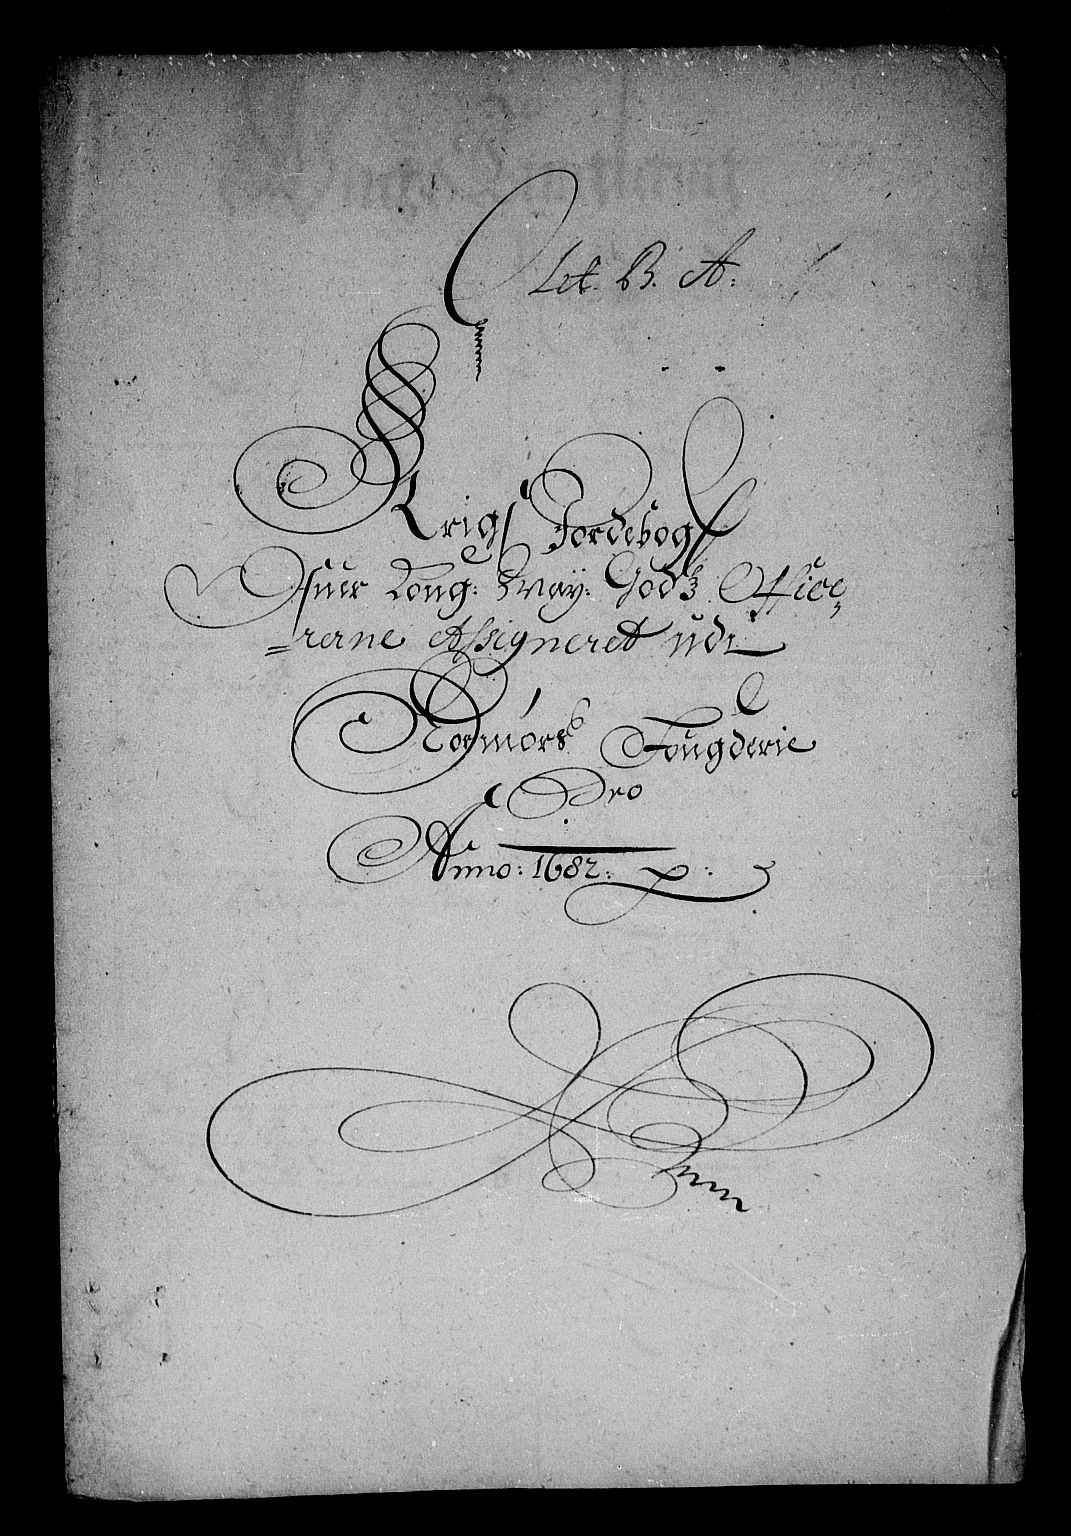 Let. B. A:
Krigs Jordebog
Ofuer Kong: May: Godz Office,
=rerne Assigneret udi
Nordmørs Fougderie
Pro
Anno: 1682: